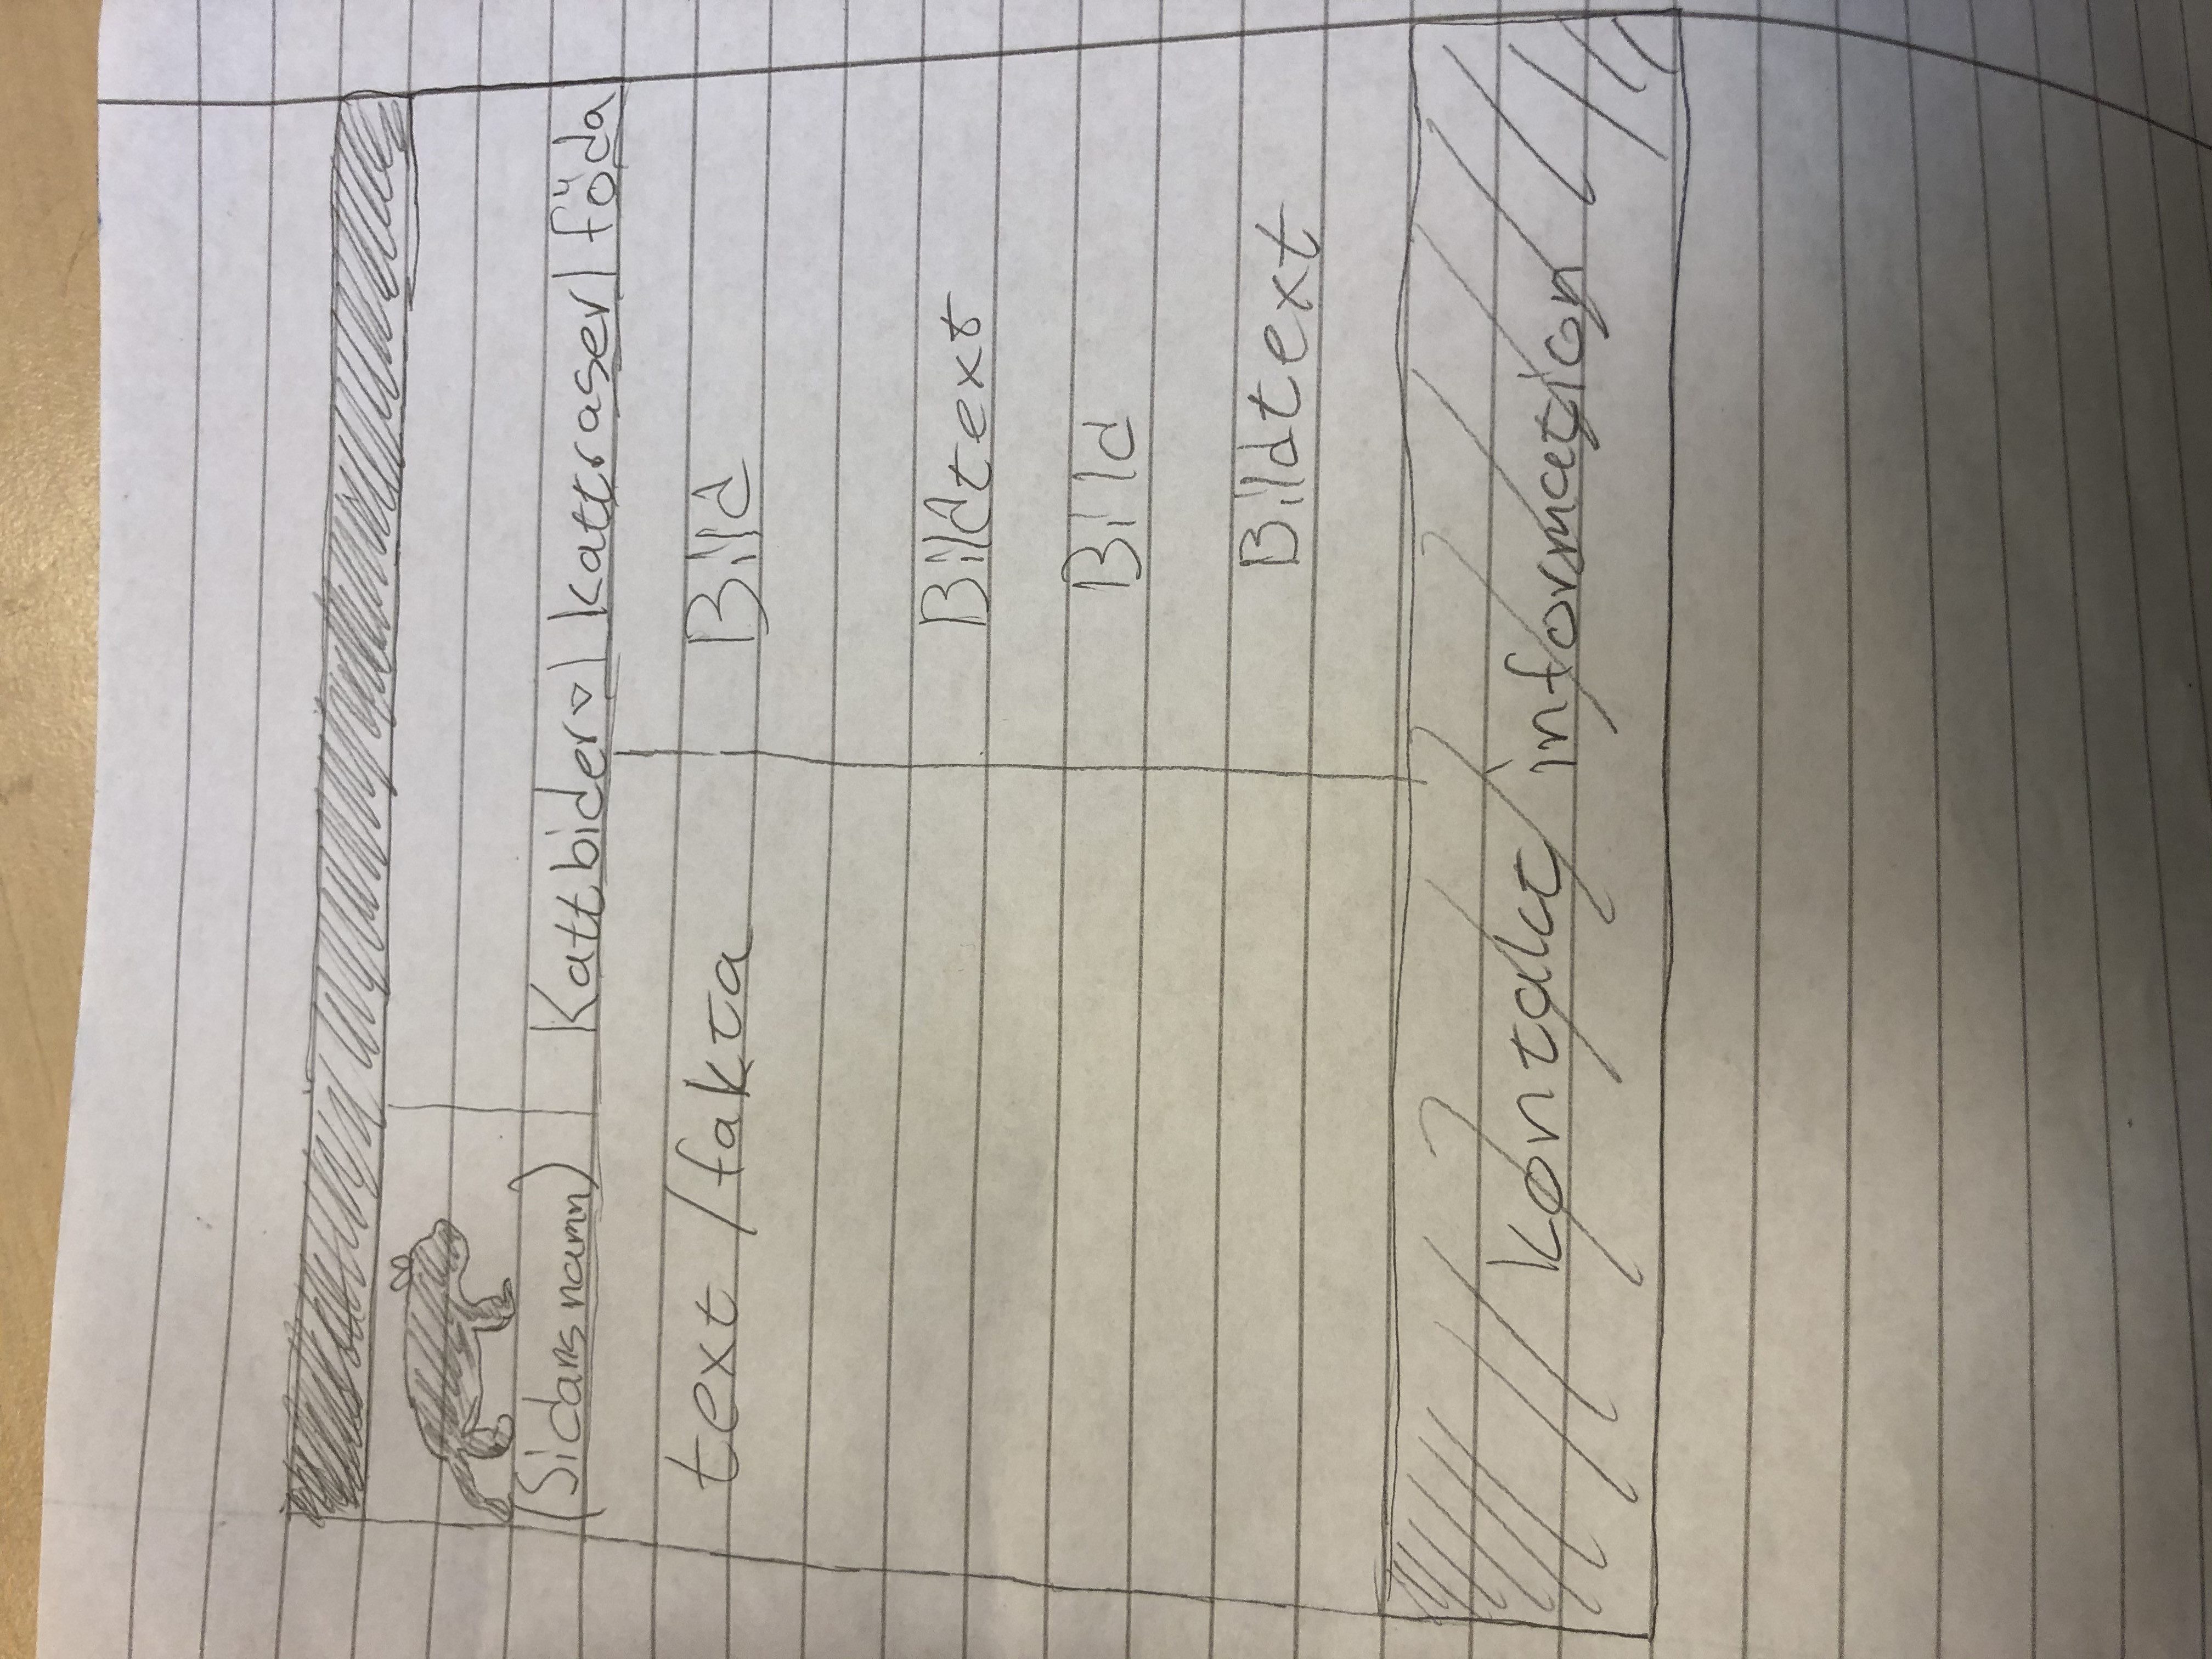 (Sidans namn)
Kattbider▿ | kattraser | föda
text / fakta
Bild
Bildtext
Bild
Bildtext
kontakt information